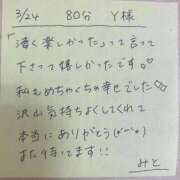 3/24 80分 Y様
「凄く楽しかった」って言って
下さって嬉しかったです♡
私もめちゃくちゃ幸せでした♡
沢山気持ちよくしてくれて
本当にありがとう(*´˘`*)
また待ってます!!
みと